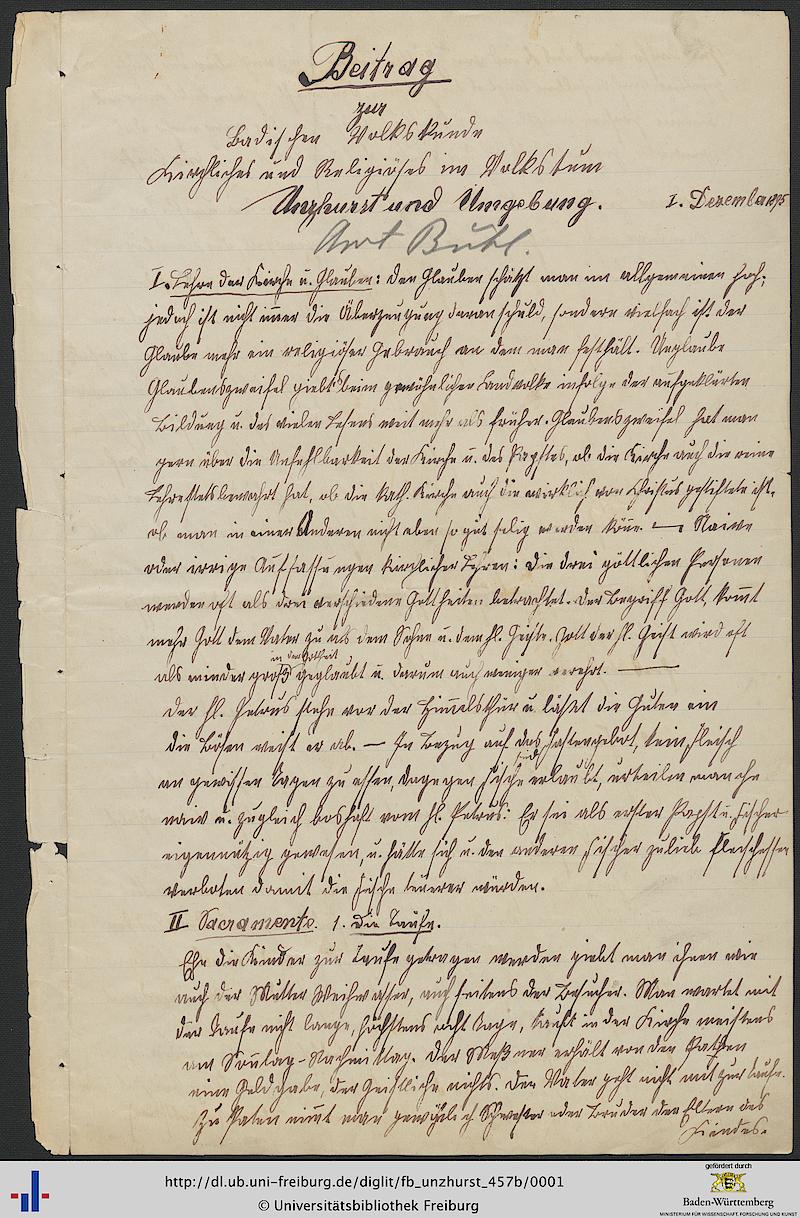 Beitrag
zur
Badischen Volkskunde
Kirchliches und Religiöses im Volkstum
Unzhurst und Umgebung. 1. Dezember 1895
Amt Bühl.
I. Lehre der Kirche u. Glauben: Den Glauben schätzt man im allgemeinen hoch;
jedoch ist nicht imer die Überzeugung daran schuld, sondern vielfach ist der
Glaube mehr ein religiöser Gebrauch an dem man festhält. Unglaube
Glaubenszweifel giebts beim gewöhnlichen Landvolke infolge der aufgeklärten
Bildung u. des vielen Lesens weit mehr als früher. Glaubenszweifel hat man
gern über die Unfehlbarkeit der Kirche u. des Papstes, ob die Kirche auch die reine
Lehre stets bewahrt hat, ob die kath. Kirche auch die wirklich von Christus gestiftete ist,
ob man in einer Anderen nicht eben so gut selig werden köne. — Naive
oder irrige Auffassungen kirchlicher Lehren: Die drei göttlichen Personen
werden oft als drei verschiedene Gottheiten betrachtet. Der Begriff Gott, komt
mehr Gott dem Vater zu als dem Sohne u. dem hl. Geiste. Gott der hl. Geist wird oft
als minder groß in der Gottheit geglaubt u. darum auch weniger verehrt. —
Der hl. Petrus stehe vor der Himelsthür u. läßt die Guten ein
die Bösen weist er ab. — In Bezug auf das Fastengebot, kein Fleisch
an gewissen Tagen zu essen, dagegen Fische sind erlaubt, urteilen manche
naiv u. zugleich boshaft vom hl. Petrus: Er sei als erster Papst u. Fischer
eigennützig gewesen, u. hätte sich u. den anderen Fischer zulieb Fleischessen
verboten damit die Fische teuerer würden.
II Sacramente. 1. Die Taufe.
Ehe die Kinder zur Taufe getragen werden giebt man ihnen wie
auch der Mutter Weihwasser, auch seitens der Besucher. Man wartet mit
der Taufe nicht lange, höchstens acht Tage, tauft in der Kirche meistens
am Sontag-Nachmittag. Der Meßner erhält von den Pathen
eine Geldgabe, der Geistliche nichts. Der Vater geht nicht mit zur Taufe.
Zu Paten nimt man gewöhnlich Schwester oder Bruder der Eltern des
Kindes.
http://dl.ub.uni-freiburg.de/diglit/fb_unzhurst_457b/0001
© Universitätsbibliothek Freiburg
gefördert durch
Baden-Württemberg
MINISTERIUM FÜR WISSENSCHAFT, FORSCHUNG UND KUNST